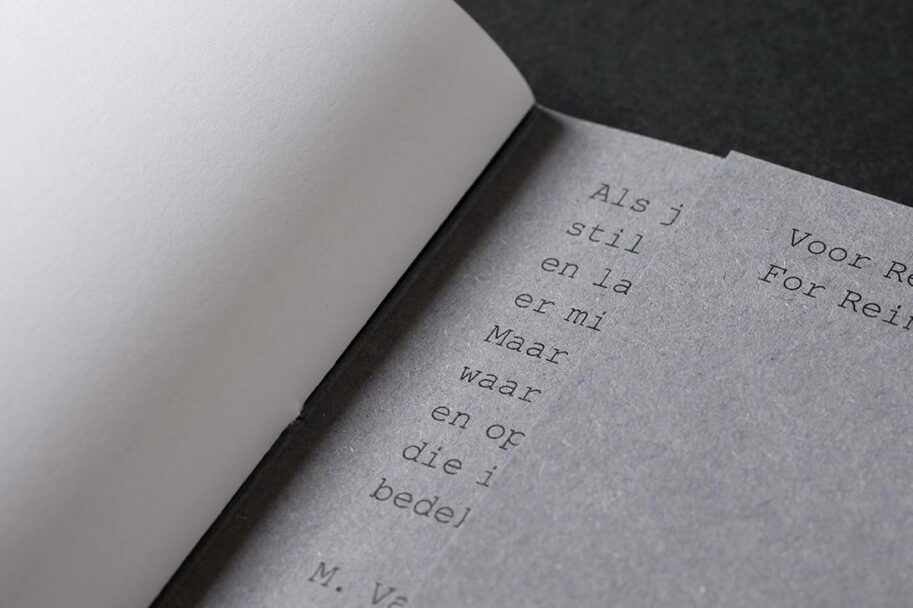 Als j
stil
en la
er mi
Maar
waar
en op
die i
bedel
M. Va
Voor Re
For Rein